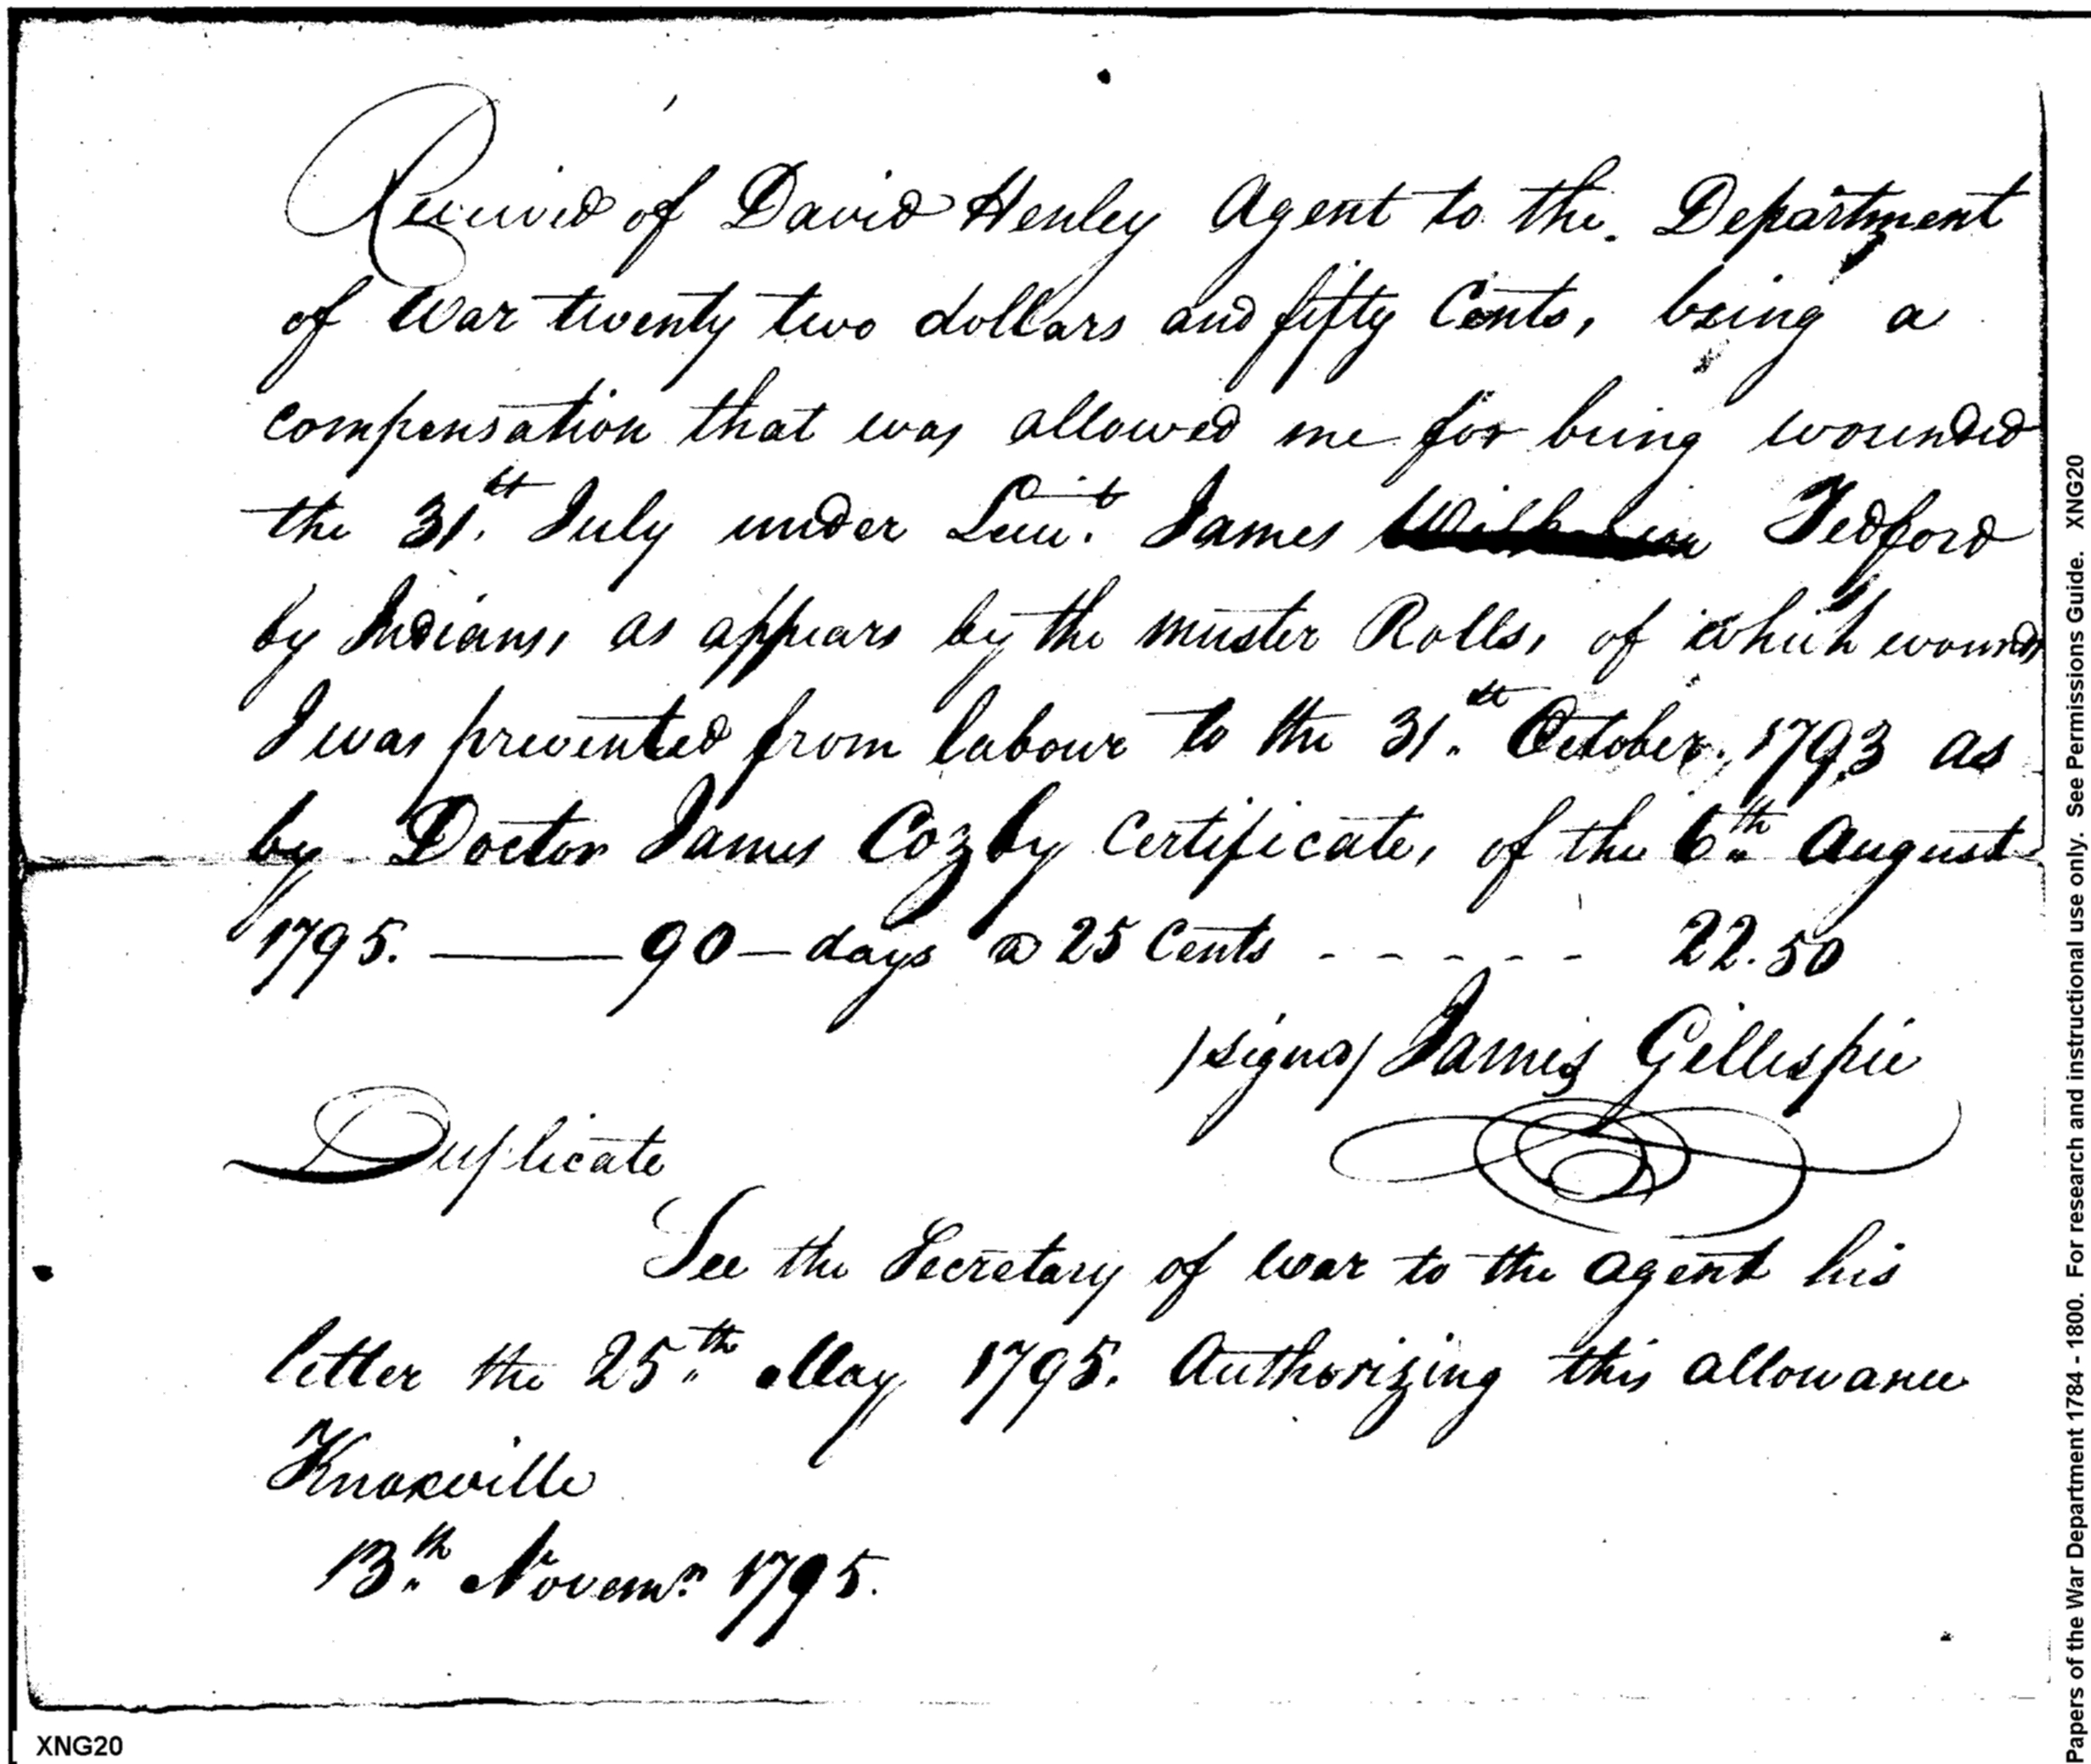 Received of David Henley Agent to the Department
of War twenty two dollars and fifty Cents, being a
compensation that was allowed me for being wounded
the 31.st July under Lieut. James Tedford
by Indians, as appears by the muster Rolls, of which wounds
I was prevented from labour to the 31.st October, 1793 as
by Doctor James Cozby Certificate, of the 6.th August
1795. —— 90 — days @ 25 Cents - - - - - 22.50
/signd/ James Gillespie
Duplicate
See the Secretary of War to the Agent his
letter the 25.th May 1795. Authorizing this allowance
Knoxville
13.th Novemr. 1795.
XNG20
Papers of the War Department 1784 - 1800. For research and instructional use only. See Permissions Guide. XNG20